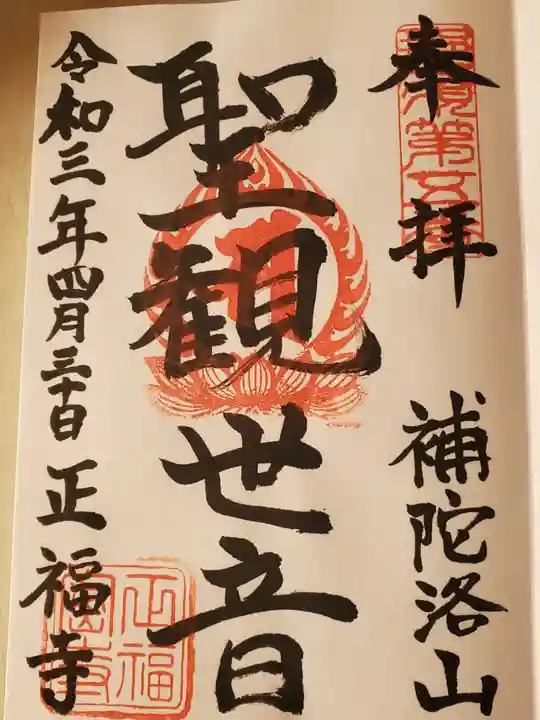 奉拝
補陀洛山
聖観世音
令和三年四月三十日
正福寺
正福